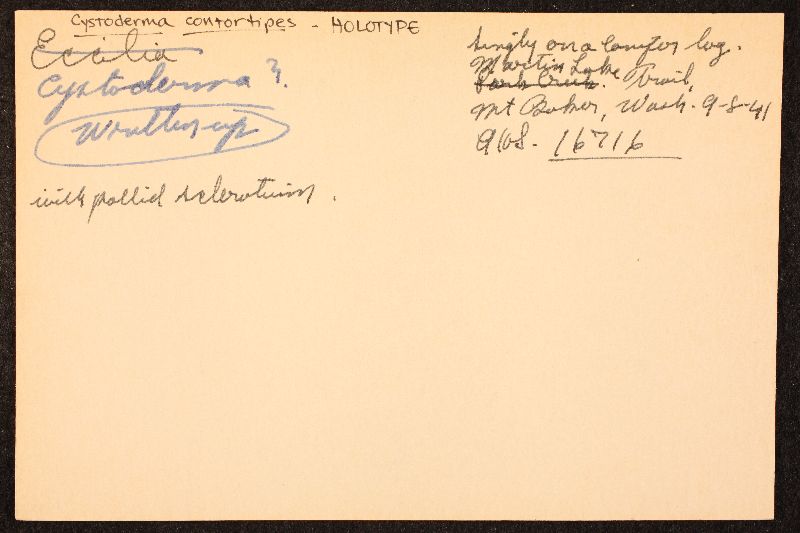 Cystoderma contortipes - HOLOTYPE
Eccilia
Cystoderma ?
Written up
with pallid sclerotium .
Singly on a conifer log.
Martin Lake
Park Creek. Trail,
Mt Baker, Wash. 9-8-41
AHS. 16716